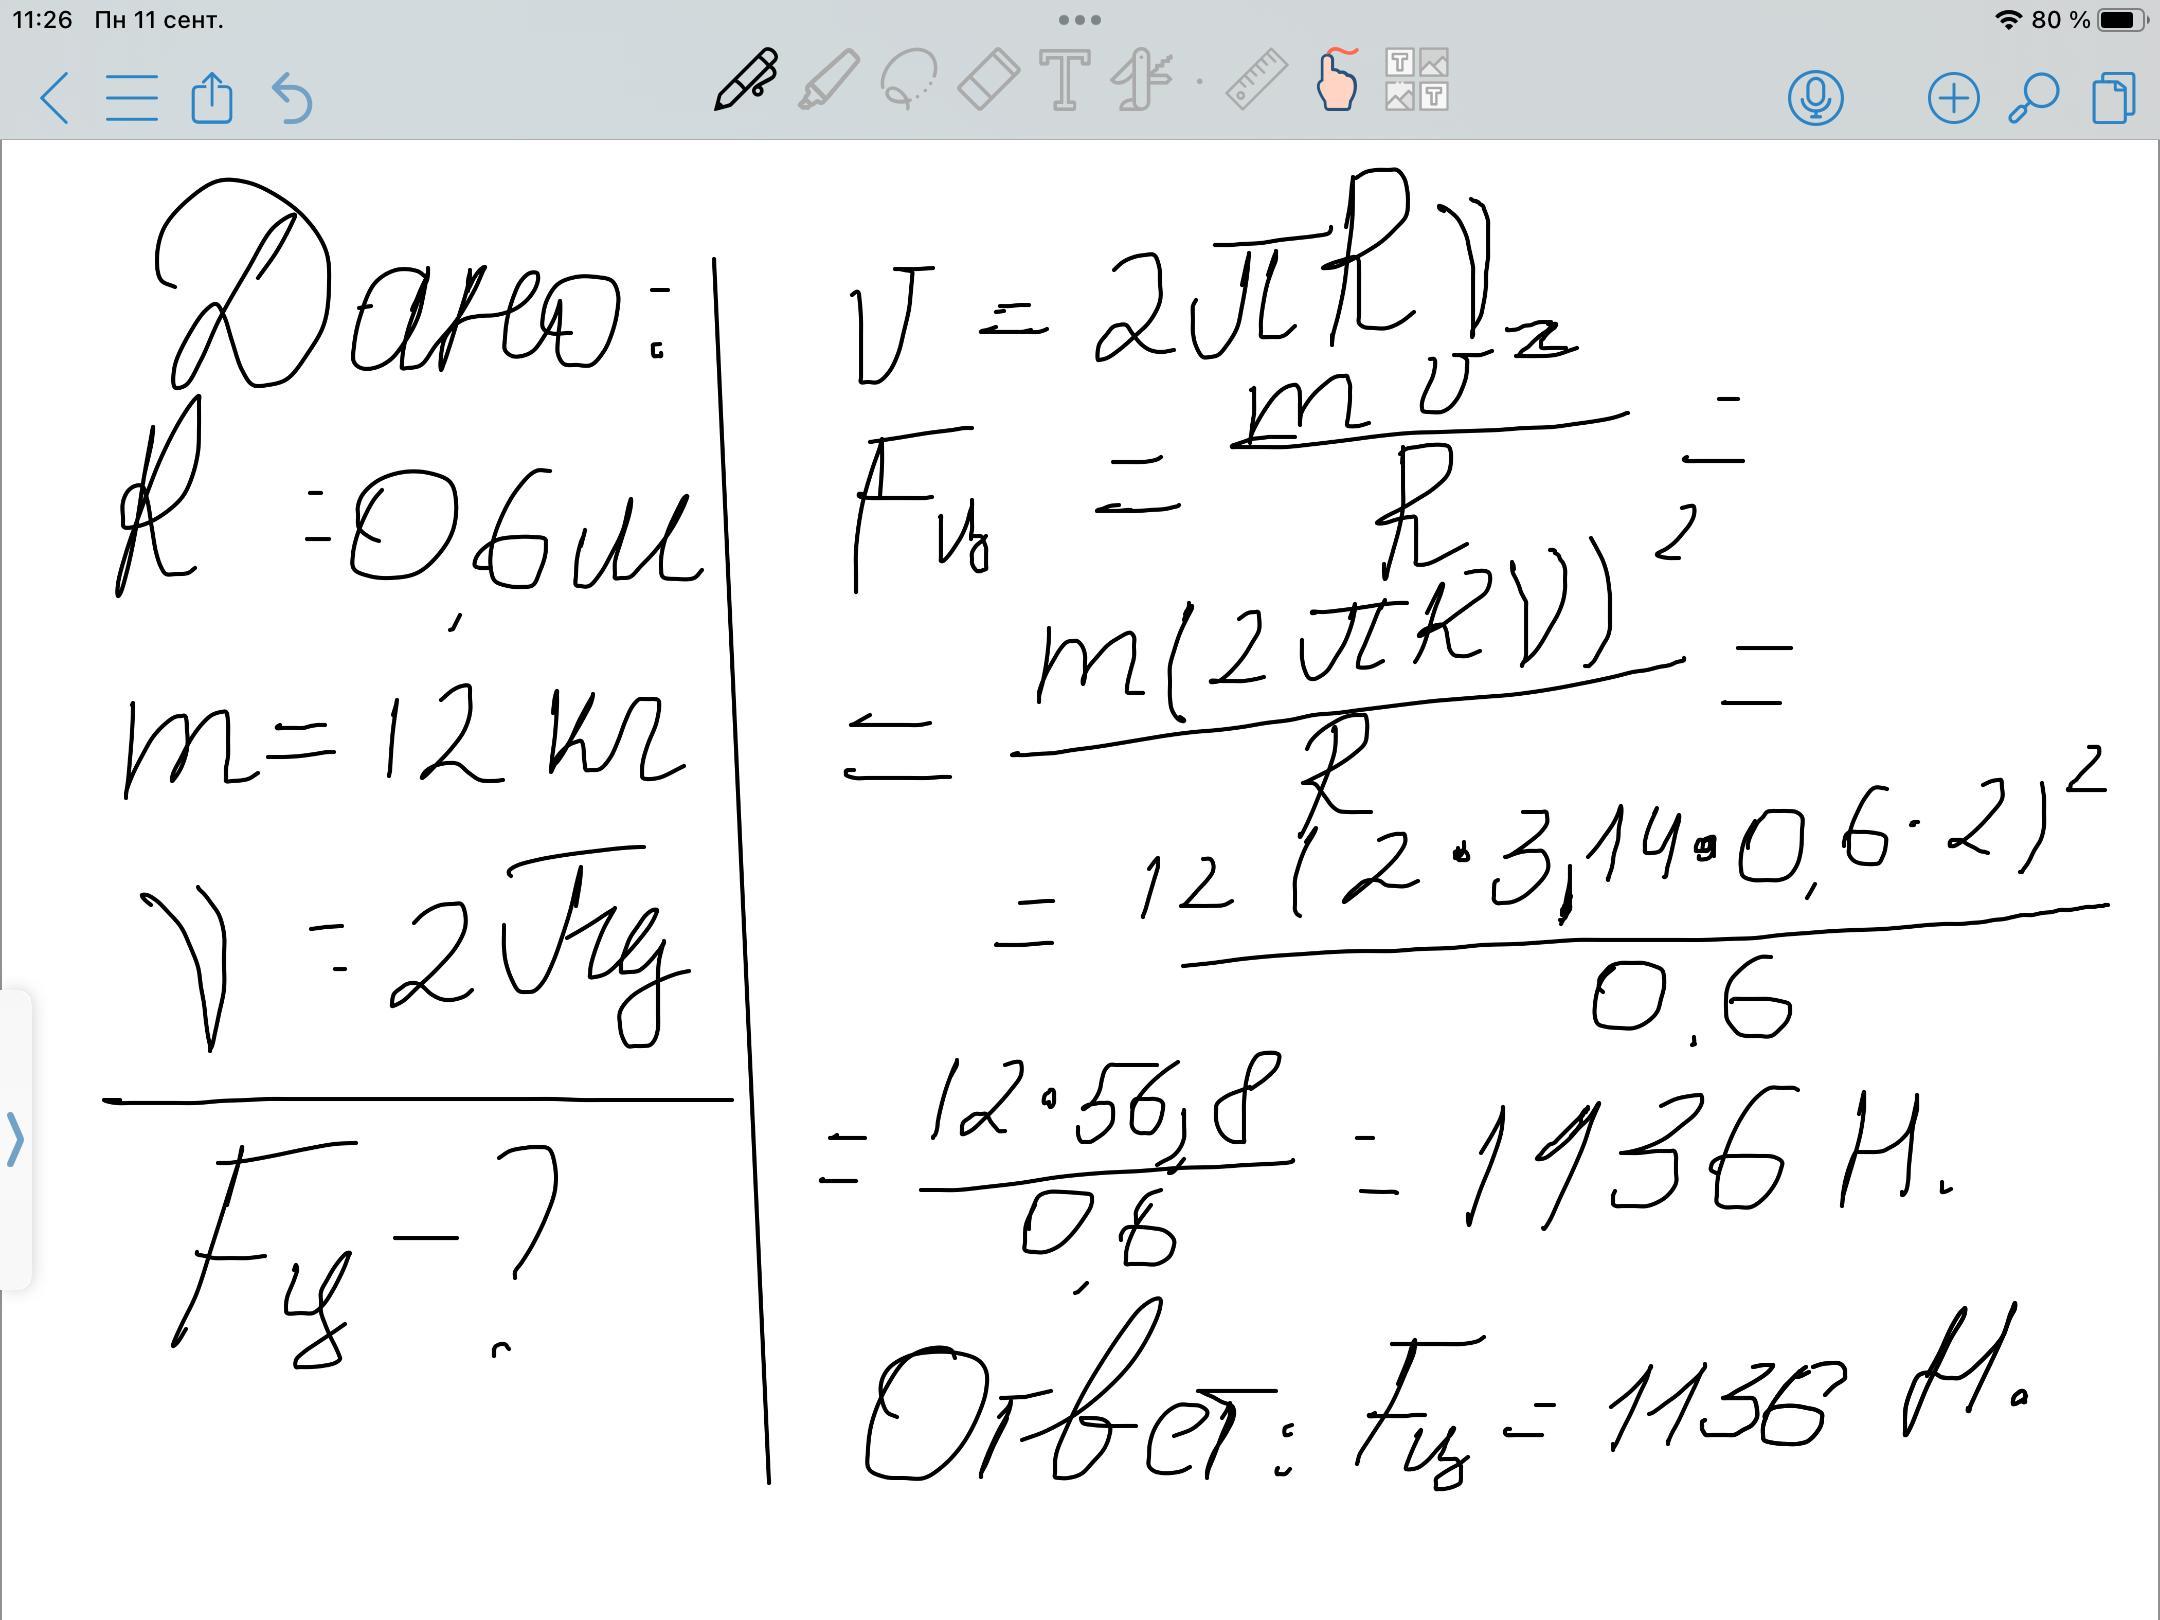 11:26 Пн 11 сент. 80 %
Дано:
R = 0,6 м
m = 12 кг
ν = 2 Гц
Fц – ?
v = 2πRν
Fц = mv²/R =
= m(2πRν)²/R =
= 12(2·3,14·0,6·2)²/0,6
= 12·56,8/0,6 = 1136 Н.
Ответ: Fц = 1136 Н.